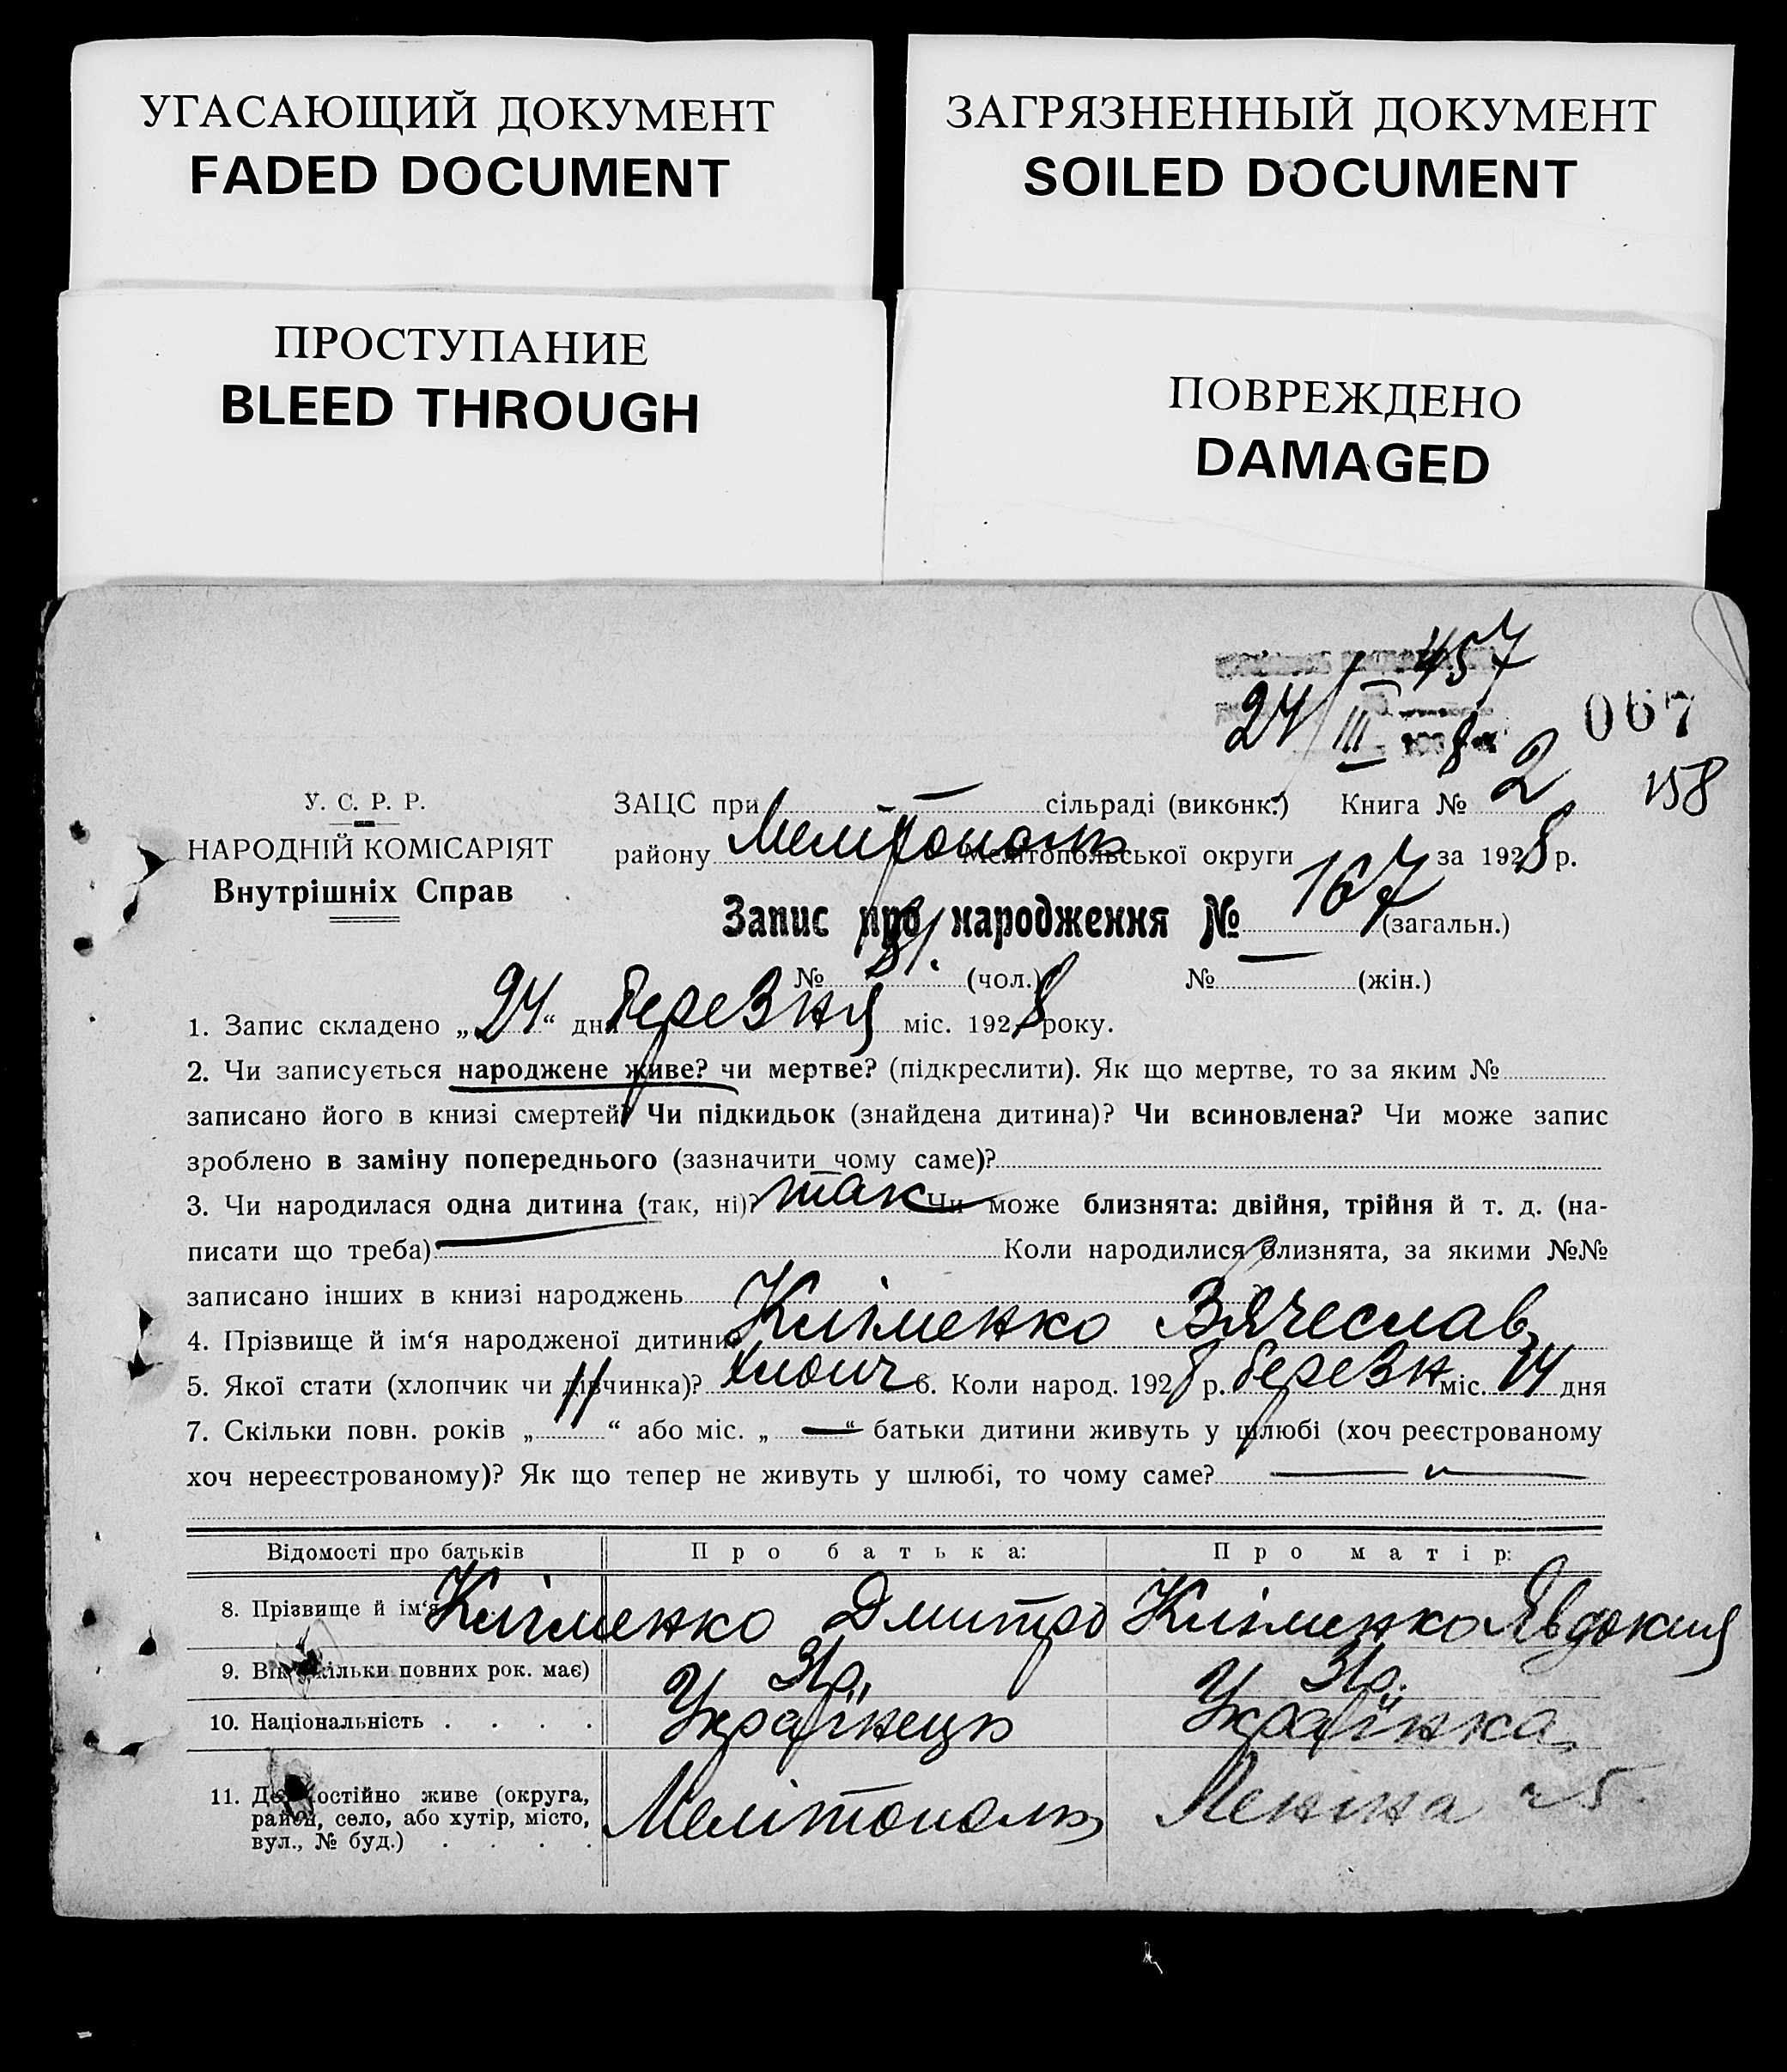 УГАСАЮЩИЙ ДОКУМЕНТ
FADED DOCUMENT
ЗАГРЯЗНЕННЫЙ ДОКУМЕНТ
SOILED DOCUMENT
ПРОСТУПАНИЕ
BLEED THROUGH
ПОВРЕЖДЕНО
DAMAGED
457
24/III 8
067
158
У. С. Р. Р.
НАРОДНІЙ КОМІСАРІЯТ
Внутрішніх Справ
ЗАЦС при — сільраді (виконк.) Книга № 2
району Мелітополь Мелітопольської округи за 1928 р.
Запис про народження № 167 (загальн.)
№ 81. (чол.) № — (жін.)
1. Запис складено „24“ дня березня міс. 1928 року.
2. Чи записується народжене живе? чи мертве? (підкреслити). Як що мертве, то за яким №
записано його в книзі смертей? Чи підкидьок (знайдена дитина)? Чи всиновлена? Чи може запис
зроблено в заміну попереднього (зазначити чому саме)?
3. Чи народилася одна дитина (так, ні)? так Чи може близнята: двійня, трійня й т. д. (на-
писати що треба) — Коли народилися близнята, за якими №№
записано інших в книзі народжень
4. Прізвище й ім‘я народженої дитини Кліменко Вячеслав
5. Якої стати (хлопчик чи дівчинка)? хлопч 6. Коли народ. 1928 р. березн міс. 14 дня
7. Скільки повн. років „11“ або міс. „—“ батьки дитини живуть у шлюбі (хоч реєстрованому
хоч нереєстрованому)? Як що тепер не живуть у шлюбі, то чому саме? — „ —
Відомості про батьків Про батька: Про матір:
8. Прізвище й ім‘я Кліменко Дмитро Кліменко Явдокия
9. Вік (скільки повних рок. має) 31р. 31р.
10. Національність . . . . Українець Українка
11. Де постійно живе (округа,
район, село, або хутір, місто,
вул., № буд.) . . . . Мелітополь Леніна 25.